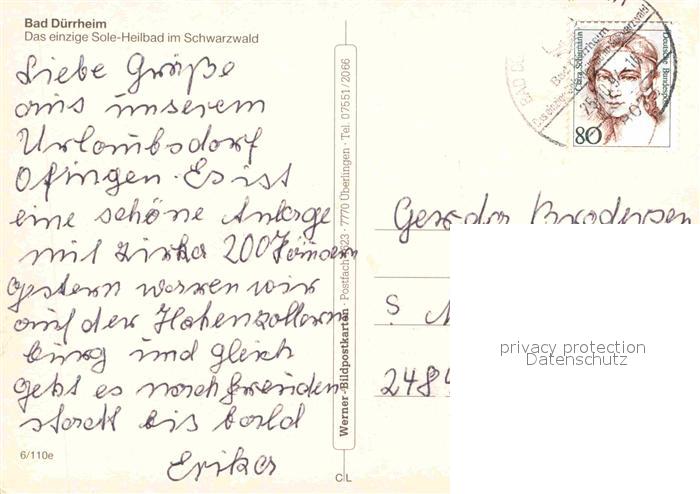 Bad Dürrheim
Das einzige Sole-Heilbad im Schwarzwald
Liebe Grüße
aus unserem
Urlaubsdorf
Öfingen. Es ist
eine schöne Anlage
mit zirka 200 Häusern
gestern waren wir
auf der Hohenzollern
burg und gleich
geht es nach Freuden
stadt bis bald
Erika
6/110e
Werner-Bildpostkarten · Postfach 1623 · 7770 Überlingen · Tel. 07551/2066
C/L
Clara Schumann
Deutsche Bundespost
80
Bad Dürrheim
Das einzige
Schwarzwald
Brodersen
S.
privacy protection
Datenschutz